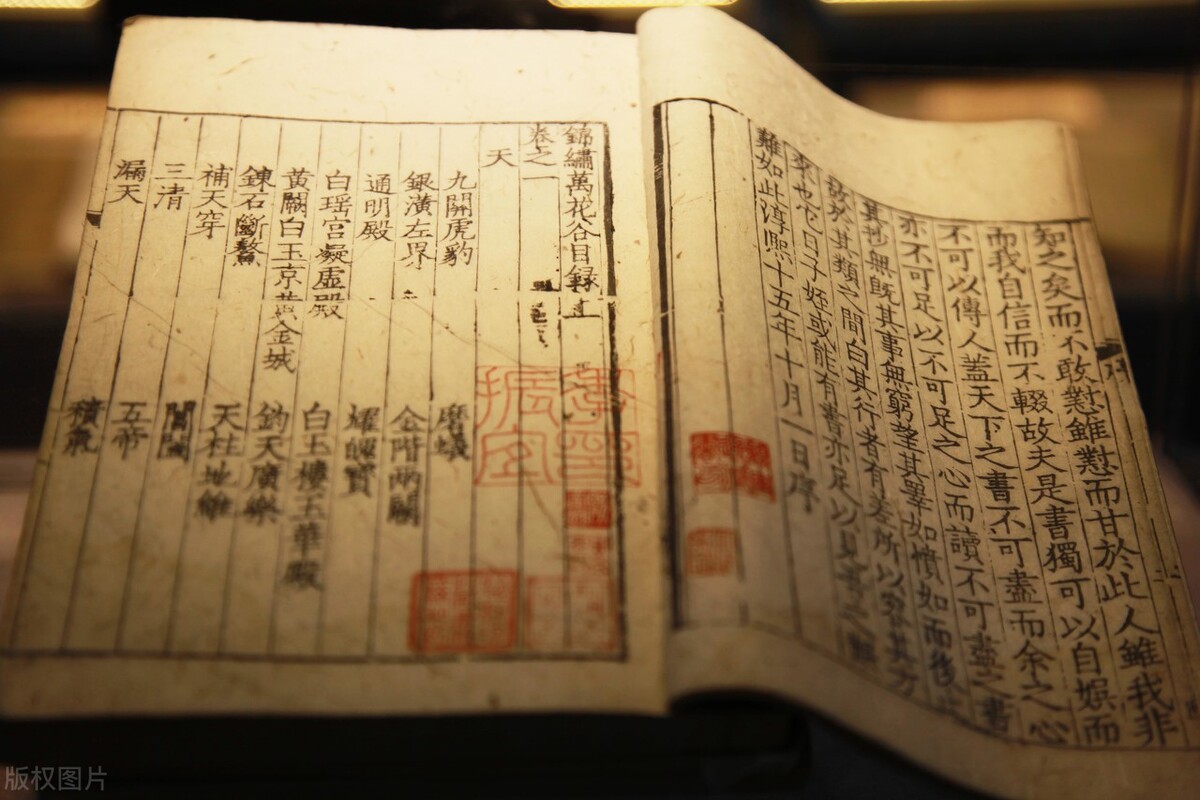 知之矣而不敢愬雖愬而甘於此人雖我非
而我自信而不輟故夫是書獨可以自娛而
不可以傳人蓋天下之書不可盡而余之心
亦不可足以不可足之心而讀不可盡之書
其抄無旣其事無窮望其畢如憤如而後
於其類之間白其行者有差所以容其方
來也它日子姪或能有書亦足以見書之
難如此淳熙十五年十月一日序
錦繡萬花谷目録
卷之一
天
九關虎豹 磨蟻
銀潢左界 金階兩闕
通明殿 耀魄寶
白瑶宫凝虚殿 白玉樓玉華殿
黃闕白玉京黃金城 鈞天廣樂
鍊石斷鰲 天柱地維
補天穿 閶闔
三清 五帝
漏天 積氣
版权图片